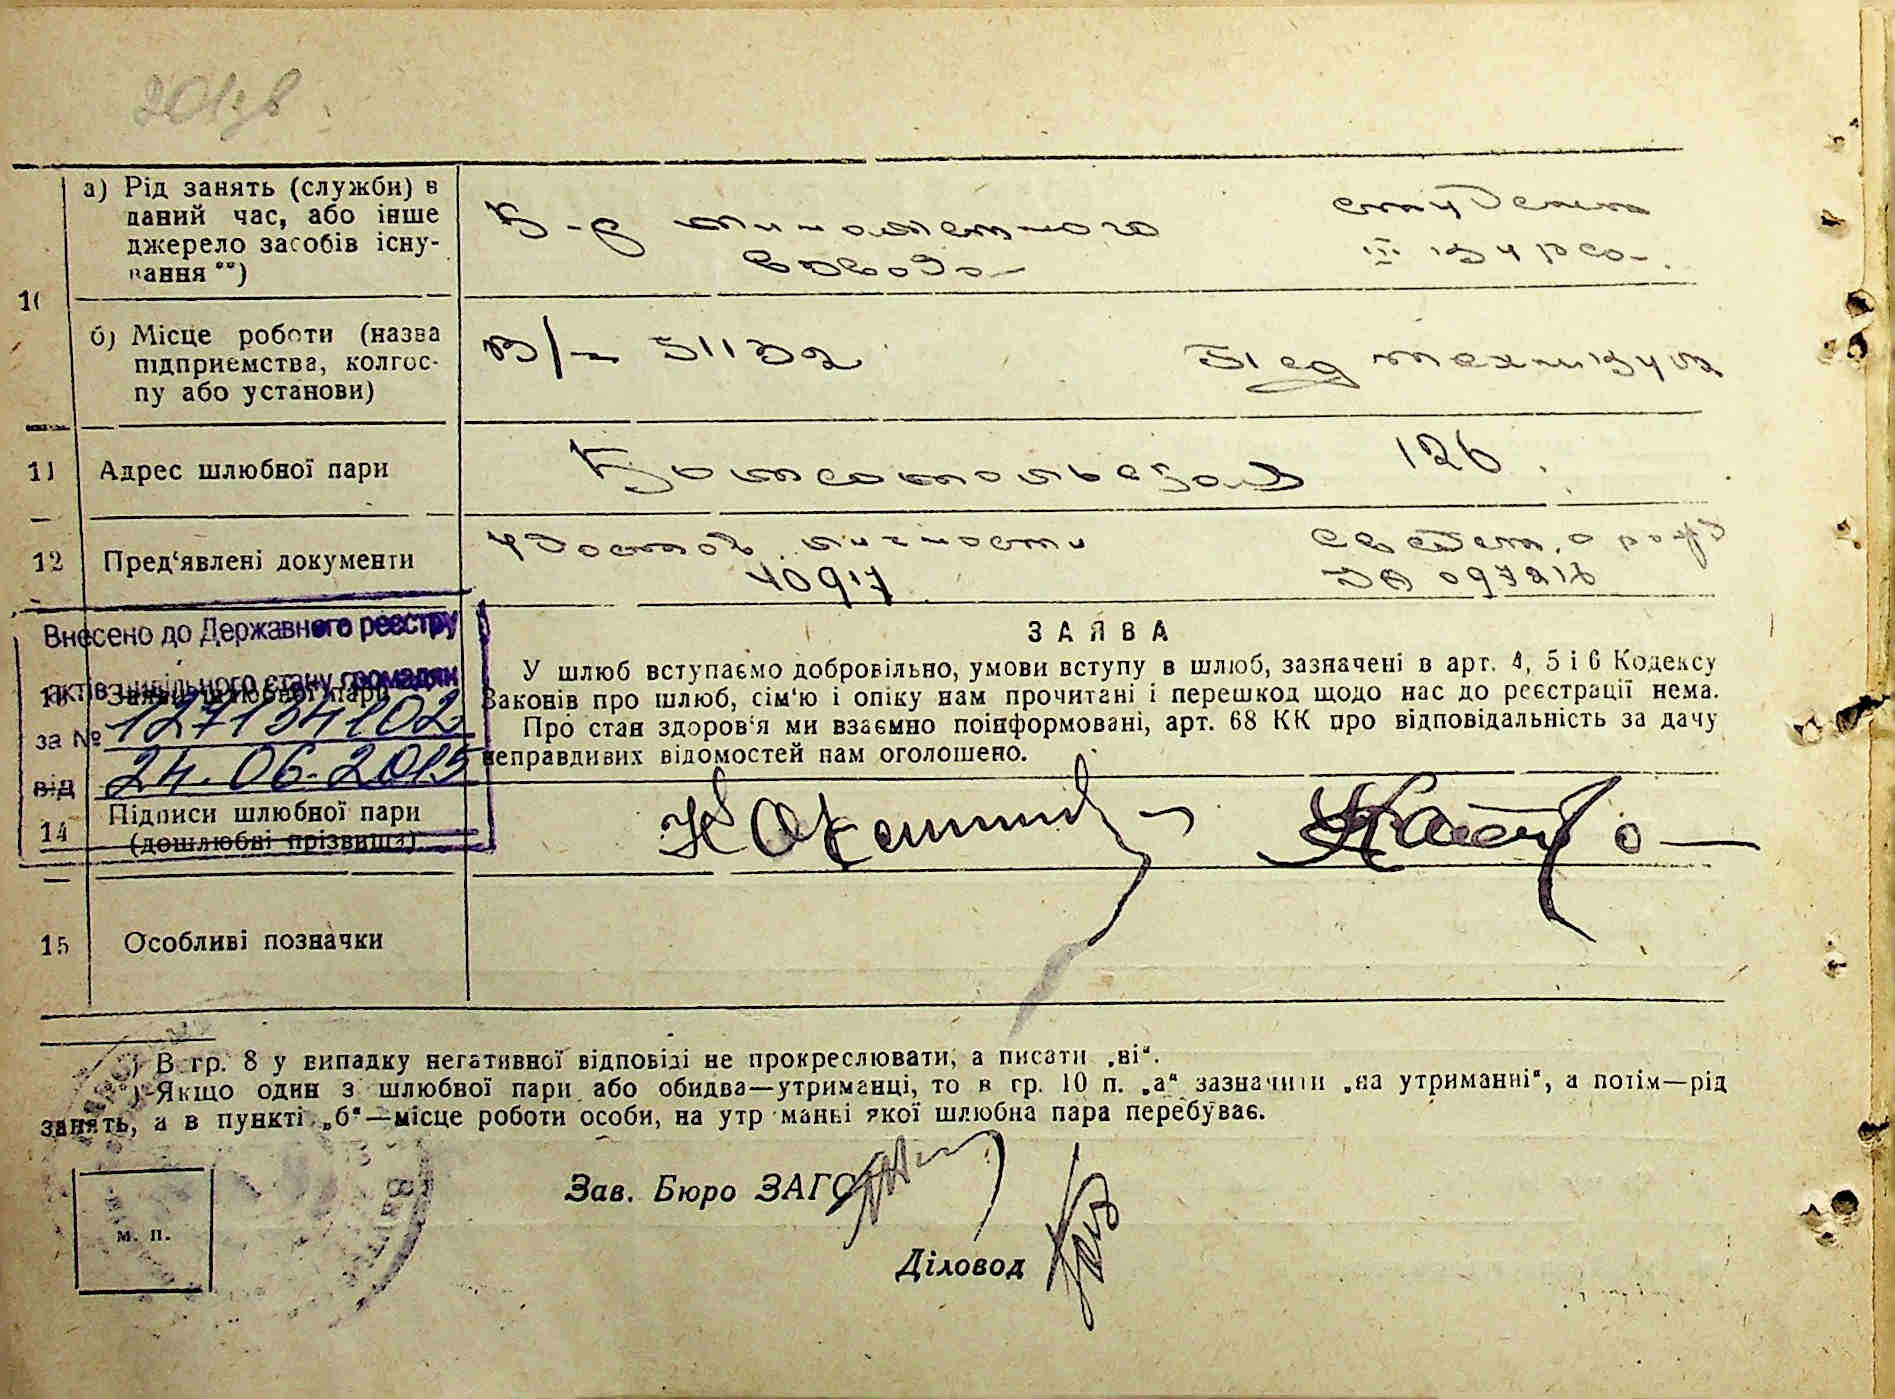 а) Рід занять (служби) в
даний час, або інше
джерело засобів існу-
вання **)
10
К-р минометного
взвода
студентка
III курса.
б) Місце роботи (назва
підприємства, колгос-
пу або установи)
В/ч 51132
Пед техникум
11 Адрес шлюбної пари
Комсомольская 126.
12 Пред'явлені документи
удостов. личности
40917
свидет. о рожд
097216
Внесено до Державного реєстру
актів цивільного стану громадян
за № 127134102
від 24.06.2015
13 Заява шлюбної пари
ЗАЯВА
У шлюб вступаємо добровільно, умови вступу в шлюб, зазначені в арт. 4, 5 і 6 Кодексу
Законів про шлюб, сім'ю і опіку нам прочитані і перешкод щодо нас до реєстрації нема.
Про стан здоров'я ми взаємно поінформовані, арт. 68 КК про відповідальність за дачу
неправдивих відомостей нам оголошено.
14 Підписи шлюбної пари
(дошлюбні прізвища)
15 Особливі позначки
*) В гр. 8 у випадку негативної відповіді не прокреслювати, а писати „ні“.
**) Якщо один з шлюбної пари або обидва—утриманці, то в гр. 10 п. „а“ зазначити „на утриманні“, а потім—рід
занять, а в пункті „б“—місце роботи особи, на утриманні якої шлюбна пара перебуває.
Зав. Бюро ЗАГС
м. п.
Діловод